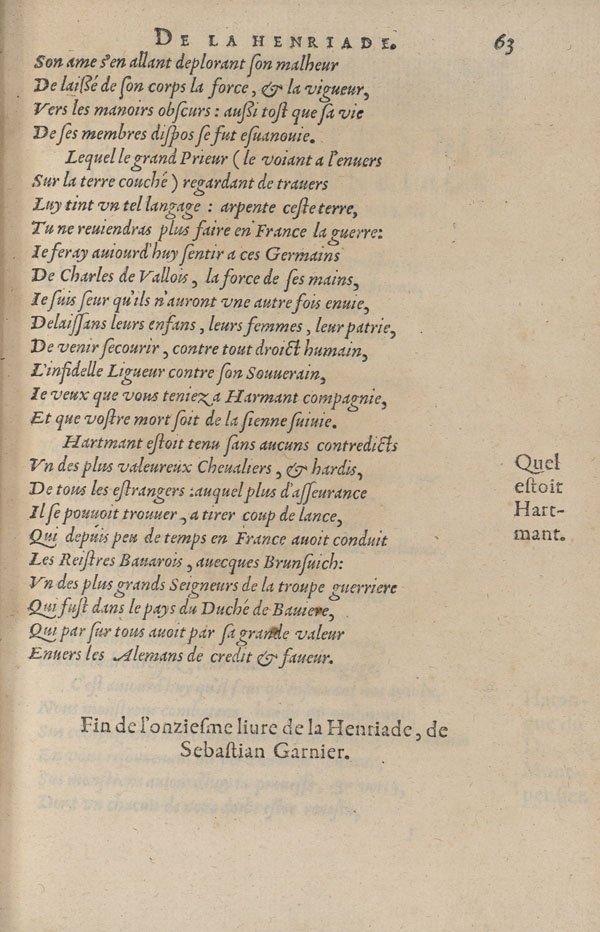 DE LA HENRIADE. 63
Son ame s'en allant deplorant son malheur
De laissé de son corps la force, & la vigueur,
Vers les manoirs obscurs : aussi tost que sa vie
De ses membres dispos se fut esuanouie.
Lequel le grand Prieur ( le voiant a l'enuers
Sur la terre couché ) regardant de trauers
Luy tint vn tel langage : arpente ceste terre,
Tu ne reuiendras plus faire en France la guerre:
Ie feray auiourd'huy sentir a ces Germains
De Charles de Vallois, la force de ses mains,
Ie suis seur qu'ils n'auront vne autre fois enuie,
Delaissans leurs enfans, leurs femmes, leur patrie,
De venir secourir, contre tout droict humain,
L'infidelle Ligueur contre son Souuerain,
Ie veux que vous teniez a Harmant compagnie,
Et que vostre mort soit de la sienne suiuie.
Hartmant estoit tenu sans aucuns contredicts
Vn des plus valeureux Cheualiers, & hardis,
De tous les estrangers : auquel plus d'asseurance
Il se pouuoit trouuer, a tirer coup de lance,
Qui depuis peu de temps en France auoit conduit
Les Reistres Bauarois, auecques Brunsuich:
Vn des plus grands Seigneurs de la troupe guerriere
Qui fust dans le pays du Duché de Bauiere,
Qui par sur tous auoit par sa grande valeur
Enuers les Alemans de credit & faueur.
Quel
estoit
Hart-
mant.
Fin de l'onziesme liure de la Henriade, de
Sebastian Garnier.